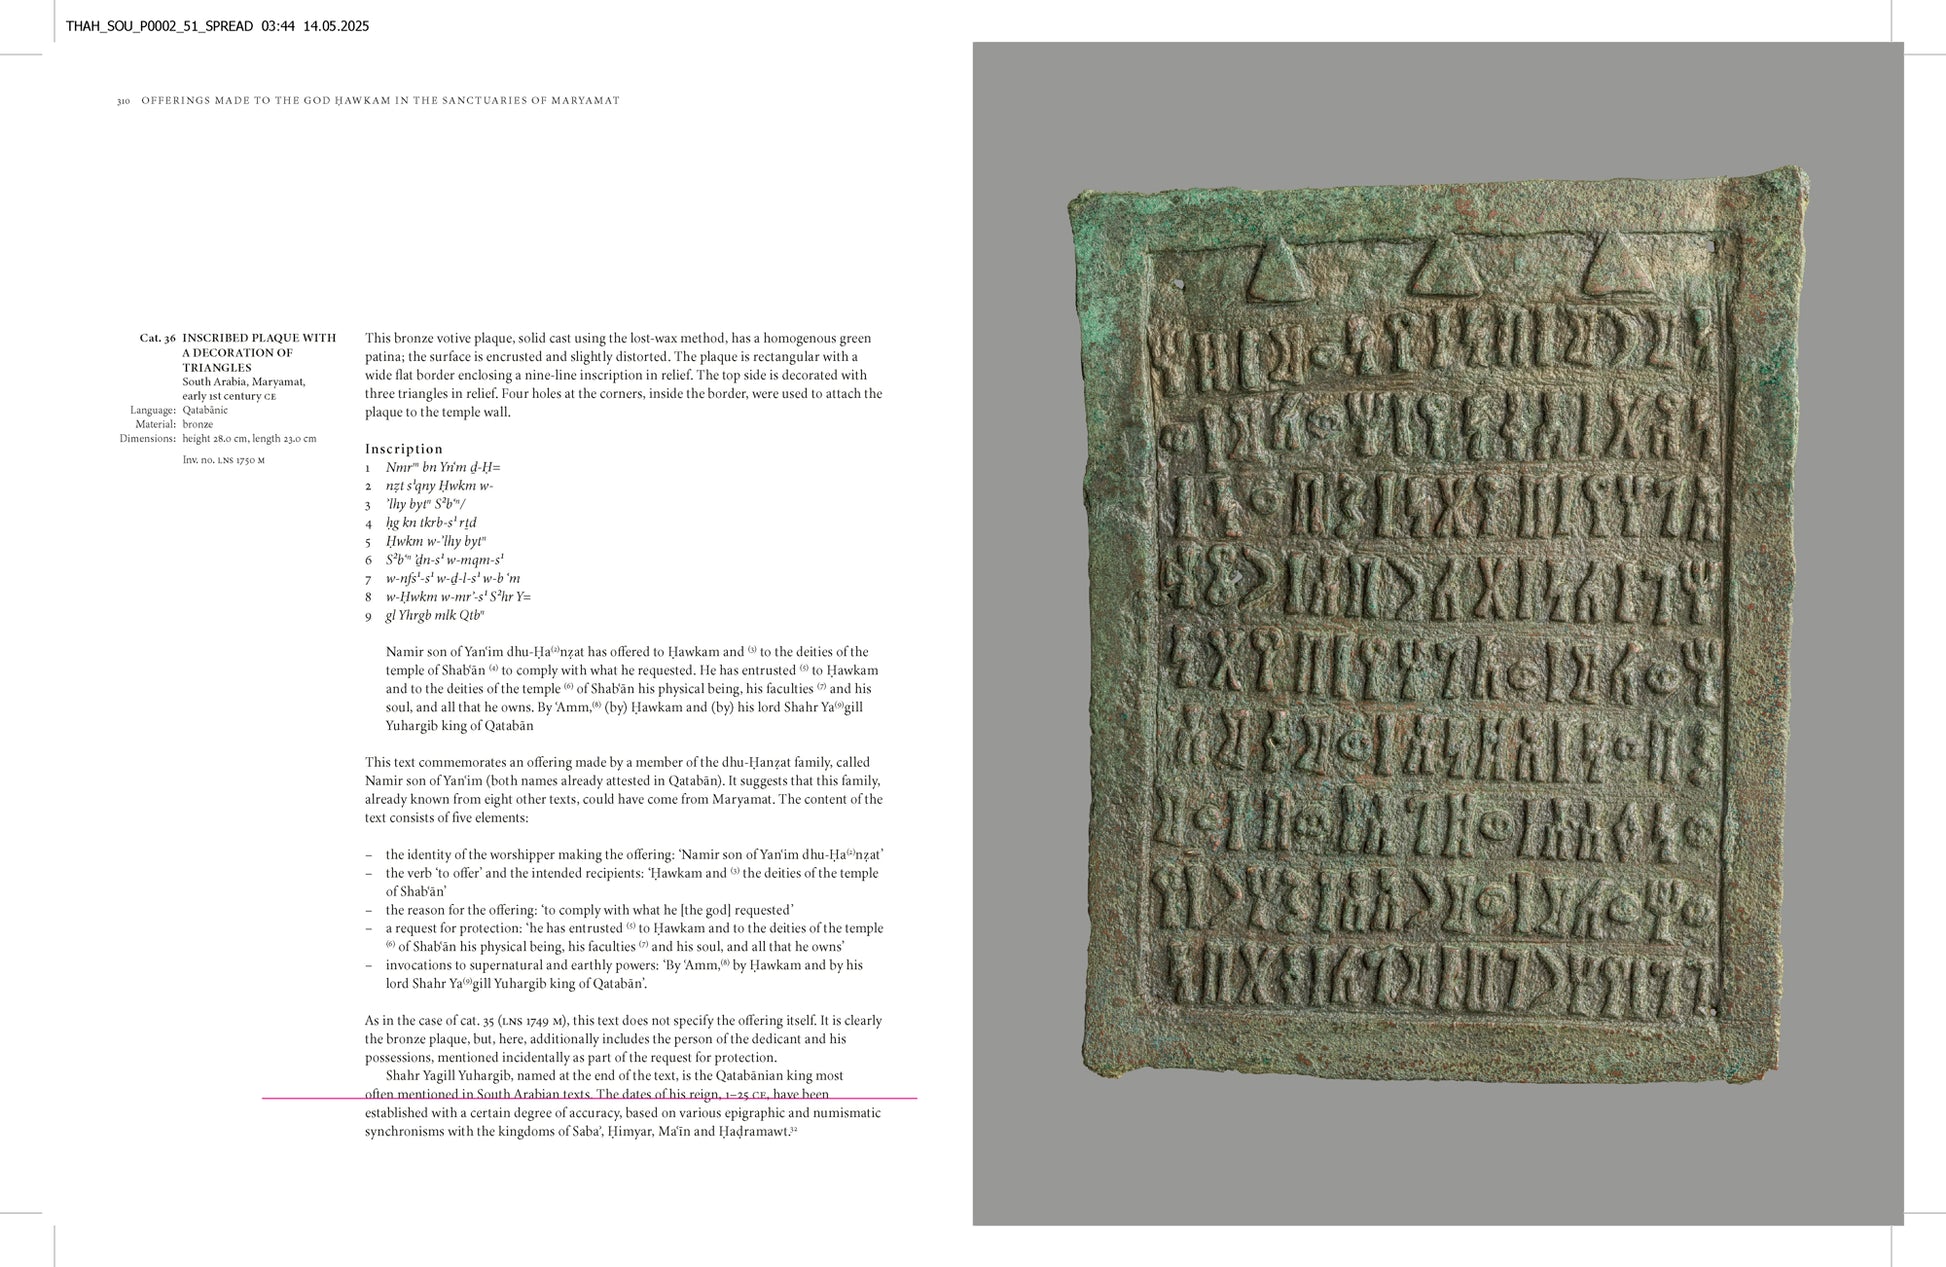 THAH_SOU_P0002_51_SPREAD 03:44 14.05.2025
310 OFFERINGS MADE TO THE GOD ḤAWKAM IN THE SANCTUARIES OF MARYAMAT
Cat. 36 INSCRIBED PLAQUE WITH
A DECORATION OF
TRIANGLES
South Arabia, Maryamat,
early 1st century CE
Language: Qatabānic
Material: bronze
Dimensions: height 28.0 cm, length 23.0 cm
Inv. no. LNS 1750 M
This bronze votive plaque, solid cast using the lost-wax method, has a homogenous green
patina; the surface is encrusted and slightly distorted. The plaque is rectangular with a
wide flat border enclosing a nine-line inscription in relief. The top side is decorated with
three triangles in relief. Four holes at the corners, inside the border, were used to attach the
plaque to the temple wall.
Inscription
1 Nmrᵐ bn Ynʿm ḏ-Ḥ=
2 nẓt s¹qny Ḥwkm w-
3 ʾlhy bytⁿ S²bʿⁿ/
4 ḥg kn tkrb-s¹ rṯd
5 Ḥwkm w-ʾlhy bytⁿ
6 S²bʿⁿ ʾḏn-s¹ w-mqm-s¹
7 w-nfs¹-s¹ w-ḏ-l-s¹ w-b ʿm
8 w-Ḥwkm w-mrʾ-s¹ S²hr Y=
9 gl Yhrgb mlk Qtbⁿ
Namir son of Yanʿim dhu-Ḥa⁽²⁾nẓat has offered to Ḥawkam and ⁽³⁾ to the deities of the
temple of Shabʿān ⁽⁴⁾ to comply with what he requested. He has entrusted ⁽⁵⁾ to Ḥawkam
and to the deities of the temple ⁽⁶⁾ of Shabʿān his physical being, his faculties ⁽⁷⁾ and his
soul, and all that he owns. By ʿAmm,⁽⁸⁾ (by) Ḥawkam and (by) his lord Shahr Ya⁽⁹⁾gill
Yuhargib king of Qatabān
This text commemorates an offering made by a member of the dhu-Ḥanẓat family, called
Namir son of Yanʿim (both names already attested in Qatabān). It suggests that this family,
already known from eight other texts, could have come from Maryamat. The content of the
text consists of five elements:
– the identity of the worshipper making the offering: ‘Namir son of Yanʿim dhu-Ḥa⁽²⁾nẓat’
– the verb ‘to offer’ and the intended recipients: ‘Ḥawkam and ⁽³⁾ the deities of the temple
of Shabʿān’
– the reason for the offering: ‘to comply with what he [the god] requested’
– a request for protection: ‘he has entrusted ⁽⁵⁾ to Ḥawkam and to the deities of the temple
⁽⁶⁾ of Shabʿān his physical being, his faculties ⁽⁷⁾ and his soul, and all that he owns’
– invocations to supernatural and earthly powers: ‘By ʿAmm,⁽⁸⁾ by Ḥawkam and by his
lord Shahr Ya⁽⁹⁾gill Yuhargib king of Qatabān’.
As in the case of cat. 35 (LNS 1749 M), this text does not specify the offering itself. It is clearly
the bronze plaque, but, here, additionally includes the person of the dedicant and his
possessions, mentioned incidentally as part of the request for protection.
Shahr Yagill Yuhargib, named at the end of the text, is the Qatabānian king most
often mentioned in South Arabian texts. The dates of his reign, 1–25 CE, have been
established with a certain degree of accuracy, based on various epigraphic and numismatic
synchronisms with the kingdoms of Sabaʾ, Ḥimyar, Maʿīn and Ḥaḍramawt.³²